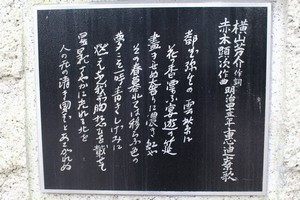 横山芳介作詞
赤木顕次作曲 明治四十五年 恵迪寮歌
都ぞ弥生の 雲紫に
花の香漂ふ宴遊の筵
盡きせぬ奢りに濃き紅や
その春暮れては移らふ色の
夢こそ一時青きしげみに
燃えなん我が胸想ひを載せて
星影さやかに光れる北を
人の世の清き國ぞとあこがれぬ